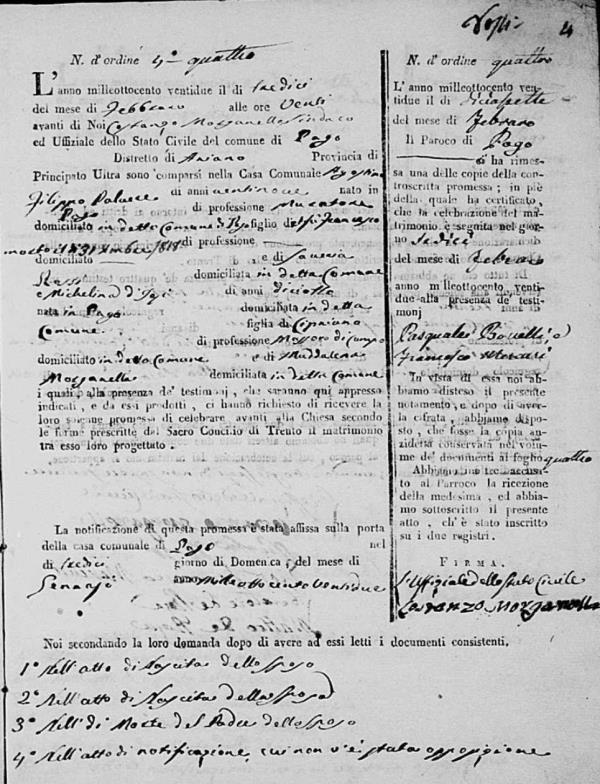 4
N. d'ordine 4° quattro
L'anno milleottocento ventidue il di tredici
del mese di Febbraro alle ore Venti
avanti di Noi Costanzo Morganella Sindaco
ed Uffiziale dello Stato Civile del comune di Pago
Distretto di Ariano Provincia di
Principato Ultra sono comparsi nella Casa Comunale Agostino
Filippo di anni ventinove nato in
Pago di professione
domiciliato in detto Comune di Pago figlio di Francesco
morto di professione
domiciliato e di
Rossi domiciliata in detta Comune
e Michelina di anni diciotto
nata in Pago domiciliata in detta
Comune figlia di Cipriano
di professione di Campo
domiciliato in detto Comune e di Maddalena
Morganella domiciliata in detta Comune
i quali alla presenza de' testimonj, che saranno qui appresso
indicati, e da essi prodotti, ci hanno richiesto di ricevere la
loro solenne promessa di celebrare avanti alla Chiesa secondo
le forme prescritte dal Sacro Concilio di Trento il matrimonio
tra esso loro progettato.
La notificazione di questa promessa è stata affissa sulla porta
della casa comunale di Pago nel
di tredici giorno di Domenica, del mese di
Gennajo anno milleottocento ventidue
N. d'ordine quattro
L'anno milleottocento ven-
tidue il di diciasette
del mese di Febraro
Il Paroco di Pago
ci ha rimes-
sa una delle copie della con-
troscritta promessa; in piè
della quale ha certificato,
che la celebrazione del ma-
trimonio è seguita nel gior-
no sedici
del mese di Febraro
anno milleottocento venti-
due alla presenza de' testi-
monj
Pasquale e
Francesco
In vista di essa noi ab-
biamo disteso il presente
notamento, e dopo di aver-
la cifrata, abbiamo dispo-
sto, che fosse la copia an-
zidetta conservata nel volu-
me de' documenti al foglio quattro
Abbiamo inoltre accusa-
to al Parroco la ricezione
della medesima, ed abbia-
mo sottoscritto il presente
atto, ch'è stato inscritto
su i due registri.
FIRMA.
L'Uffiziale dello Stato Civile
Morganella
Noi secondando la loro domanda dopo di avere ad essi letti i documenti consistenti.
1° Nell'atto di Nascita dello sposo
2° Nell'atto di Nascita della sposa
3° Nell' di Morte del Padre dello sposo
4° Nell'atto di notificazione, cui non v'è stata opposizione